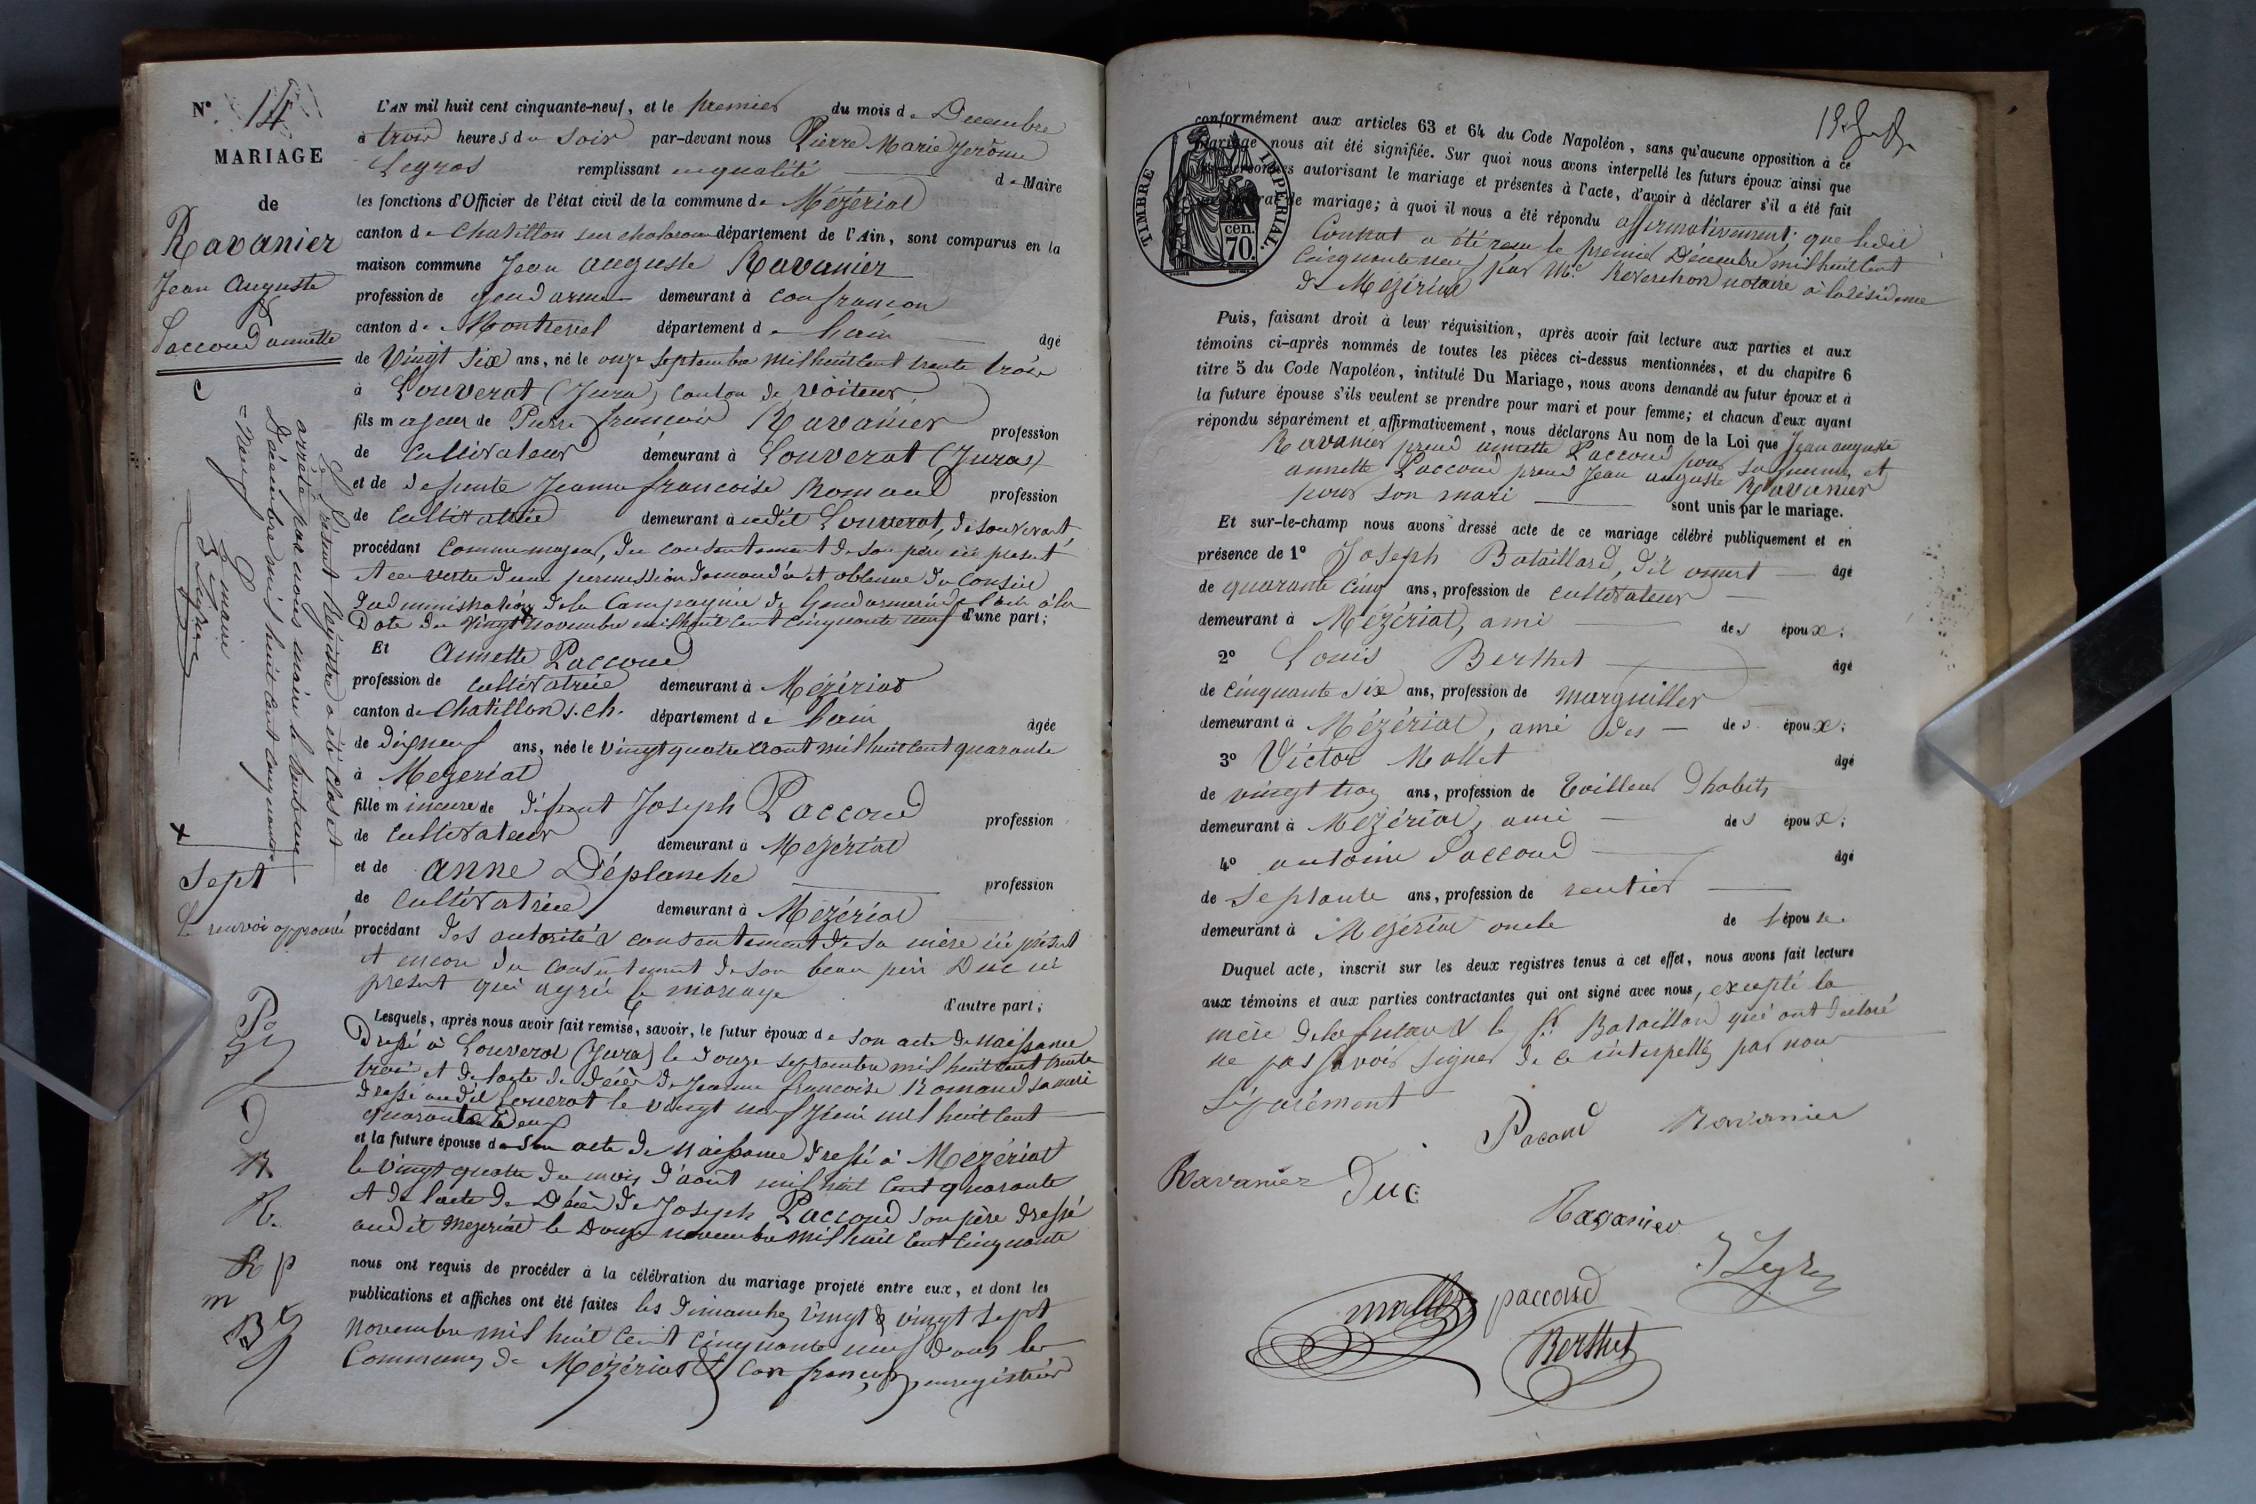 N°. 14
MARIAGE
de
Ravanier
Jean Auguste
&
Paccoud annette
C
Le présent Registre a été clos et
arrêté par nous maire le trente un
Décembre mil huit cent cinquante
= neuf
Le maire
J Legros
x
Sept
Le renvoi approuvé
D
R.
R p
m
B
L'AN mil huit cent cinquante-neuf, et le premier du mois de Décembre
à trois heures du soir par-devant nous Pierre Marie Jérôme
Legros remplissant en qualité de Maire
les fonctions d'Officier de l'état civil de la commune de Mézériat
canton de Chatillon sur chalaronne département de l'Ain, sont comparus en la
maison commune Jean auguste Ravanier
profession de gendarme demeurant à confrançon
canton de Montrevel département de l'ain âgé
de Vingt six ans, né le onze septembre mil huit cent trente trois
à Louverot (Jura) canton de Voiteur
fils majeur de Pierre françois Ravanier profession
de Cultivateur demeurant à Louverot (Jura)
et de defunte Jeanne francoise Romand profession
de cultivatrice demeurant audit Louverot, de son vivant,
procédant comme majeur, du consentement de son père ici présent
et en vertu d'une permission demandée et obtenue du Conseil
d'administration de la Compagnie de Gendarmerie de l'ain à la
Date du vingt x novembre mil huit cent cinquante neuf d'une part;
Et Annette Paccoud
profession de cultivatrice demeurant à Mézériat
canton de Chatillon s. ch. département de l'ain âgée
de dixneuf ans, née le vingt quatre aout mil huit cent quarante
à Mezeriat
fille mineure de défunt Joseph Paccoud profession
de Cultivateur demeurant à Mezériat
et de anne Déplanche profession
de Cultivatrice demeurant à Mézériat
procédant des autorité & consentement de sa mère ici présent
et encore du consentement de son beau père Duc ici
présent qui agrée le mariage d'autre part;
Lesquels, après nous avoir fait remise, savoir, le futur époux de son acte de Naissance
Dressé à Louverot (Jura) le douze septembre mil huit cent trente
trois et de l'acte de Décès de Jeanne francoise Romand sa mère
dressé audit Louverot le vingt neuf juin mil huit cent
quarante deux
et la future épouse de son acte de Naissance dressé à Mezériat
le vingt quatre du mois d'août mil huit cent quarante
et de l'acte de Décès de Joseph Paccoud son père dressé
audit Mezeriat le douze novembre mil huit cent cinquante
nous ont requis de procéder à la célébration du mariage projeté entre eux, et dont les
publications et affiches ont été faites les dimanches vingt & vingt sept
novembre mil huit cent cinquante neuf dans les
Communes de Mézériat & confrançon, enregistrées
TIMBRE IMPERIAL.
cen.
70.
conformément aux articles 63 et 64 du Code Napoléon, sans qu'aucune opposition à ce
mariage nous ait été signifiée. Sur quoi nous avons interpellé les futurs époux ainsi que
les personnes autorisant le mariage et présentes à l'acte, d'avoir à déclarer s'il a été fait
un contrat de mariage; à quoi il nous a été répondu affirmativement; que ledit
Contrat a été reçu le premier Décembre mil huit cent
Cinquante neuf par Me Reverchon notaire à la résidence
de Mézériat
Puis, faisant droit à leur réquisition, après avoir fait lecture aux parties et aux
témoins ci-après nommés de toutes les pièces ci-dessus mentionnées, et du chapitre 6
titre 5 du Code Napoléon, intitulé Du Mariage, nous avons demandé au futur époux et à
la future épouse s'ils veulent se prendre pour mari et pour femme; et chacun d'eux ayant
répondu séparément et affirmativement, nous déclarons Au nom de la Loi que Jean auguste
Ravanier prend annette Paccoud pour sa femme, et
annette Paccoud prend Jean auguste Ravanier
pour son mari sont unis par le mariage.
Et sur-le-champ nous avons dressé acte de ce mariage célébré publiquement et en
présence de 1° Joseph Bataillard, dit âgé
de quarante cinq ans, profession de cultivateur
demeurant à Mézériat, ami des époux;
2° Louis Berthet âgé
de Cinquante six ans, profession de marguiller
demeurant à Mézériat, ami des des époux;
3° Victor Mollet âgé
de vingt trois ans, profession de tailleur d'habits
demeurant à Mézériat, ami des époux;
4° antoine Paccoud âgé
de Septante ans, profession de rentier
demeurant à Mézériat oncle de l'épouse.
Duquel acte, inscrit sur les deux registres tenus à cet effet, nous avons fait lecture
aux témoins et aux parties contractantes qui ont signé avec nous, excepté la
mère de la future & le Sr Bataillard qui ont déclaré
ne pas savoir signer de ce interpellés par nous
séparément
Pacoud Ravanier
Ravanier Duc
Ravanier
J Legros
mollet paccoud
Berthet